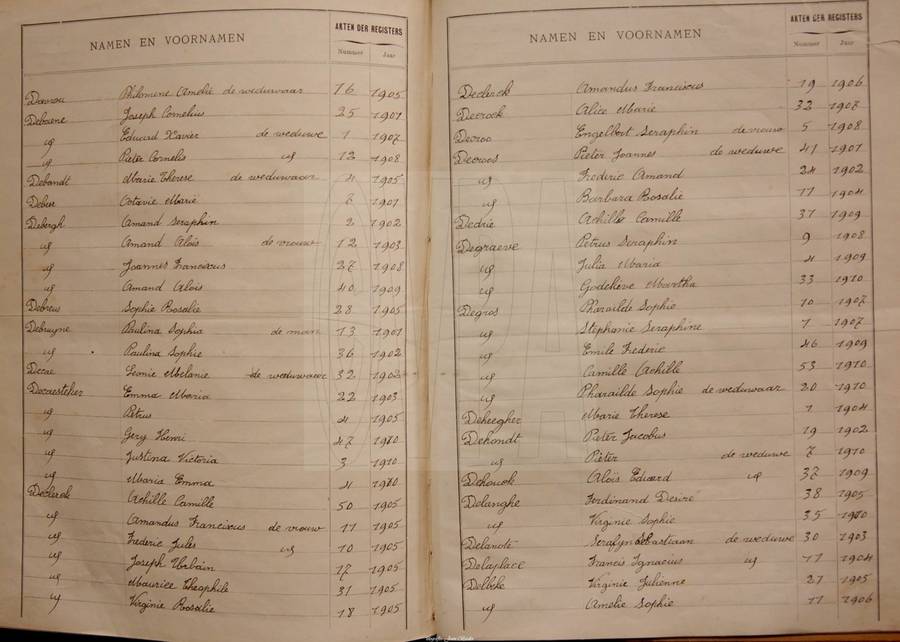 NAMEN EN VOORNAMEN AKTEN DER REGISTERS
Nummer Jaar
Philomene Amelie de weduwaar 16 1905
Debaene Joseph Cornelius 25 1901
id Eduard Xavier de weduwe 1 1907
id Pieter Cornelis id 12 1908
Debandt Marie Therese de weduwaar 4 1905
Octavie Marie 1901
Debergh Amand Seraphin 2 1902
id Amand Alois de vrouw 12 1903
id Joannes Franciscus 27 1908
id Amand Alois 40 1909
Debreu Sophie Rosalie 28 1905
Debruyne Paulina Sophia de man 13 1901
id Paulina Sophie 36 1902
Decae Leonie Melanie de weduwaar 32 1902
Decaesteker Emma Maria 22 1903
id Petrus 4 1905
id Gery Henri 47 1910
id Justina Victoria 3 1910
id Maria Emma 4 1910
Declerck Achille Camille 50 1905
id Amandus Franciscus de vrouw 11 1905
id Frederic Jules id 10 1905
id Joseph Urbain 17 1905
id Maurice Theophile 31 1905
id Virginie Rosalie 18 1905
NAMEN EN VOORNAMEN AKTEN DER REGISTERS
Nummer Jaar
Declerck Amandus Franciscus 19 1906
Decrock Alice Marie 32 1907
Decroo Engelbert Seraphin de vrouw 5 1908
Decroos Pieter Joannes de weduwe 41 1901
id Frederic Amand 24 1902
id Barbara Rosalie 11 1904
Dedrie Achille Camille 37 1909
Degraeve Petrus Seraphin 9 1908
id Julia Maria 4 1909
id Godelieve Martha 33 1910
Degros Pharailde Sophie 10 1907
id Stephanie Seraphine 1 1907
id Emile Frederic 46 1909
id Camille Achille 53 1910
id Pharailde Sophie de weduwaar 20 1910
Deheegher Marie Therese 1 1904
Dehondt Pieter Jacobus 19 1902
id Pieter de weduwe 7 1910
Dehouck Aloïs Eduard id 37 1909
Delanghe Ferdinand Desiré 38 1905
id Virginie Sophie 35 1910
Delanote Serafyn Sebastiaan de weduwe 30 1903
Delaplace Francis Ignacius id 11 1904
Virginie Julienne 21 1905
id Amelie Sophie 11 1906